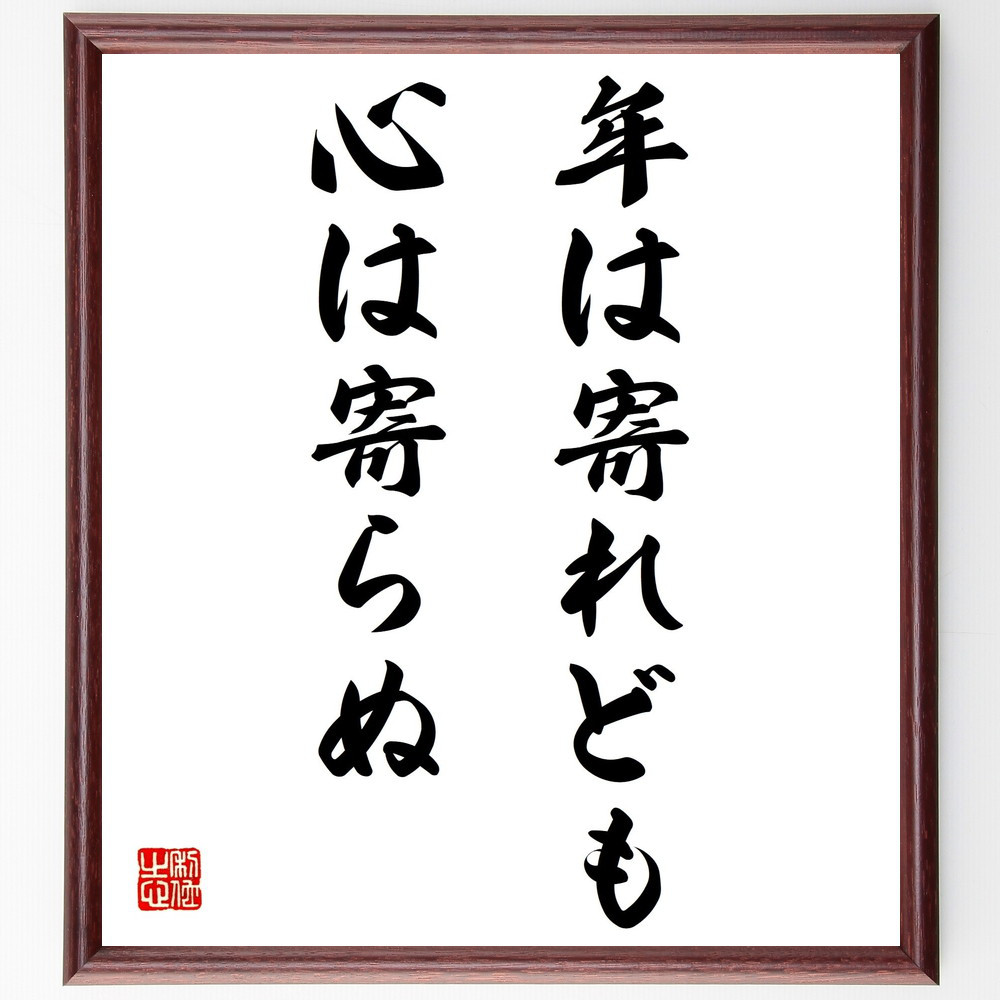 年は寄れども
心は寄らぬ